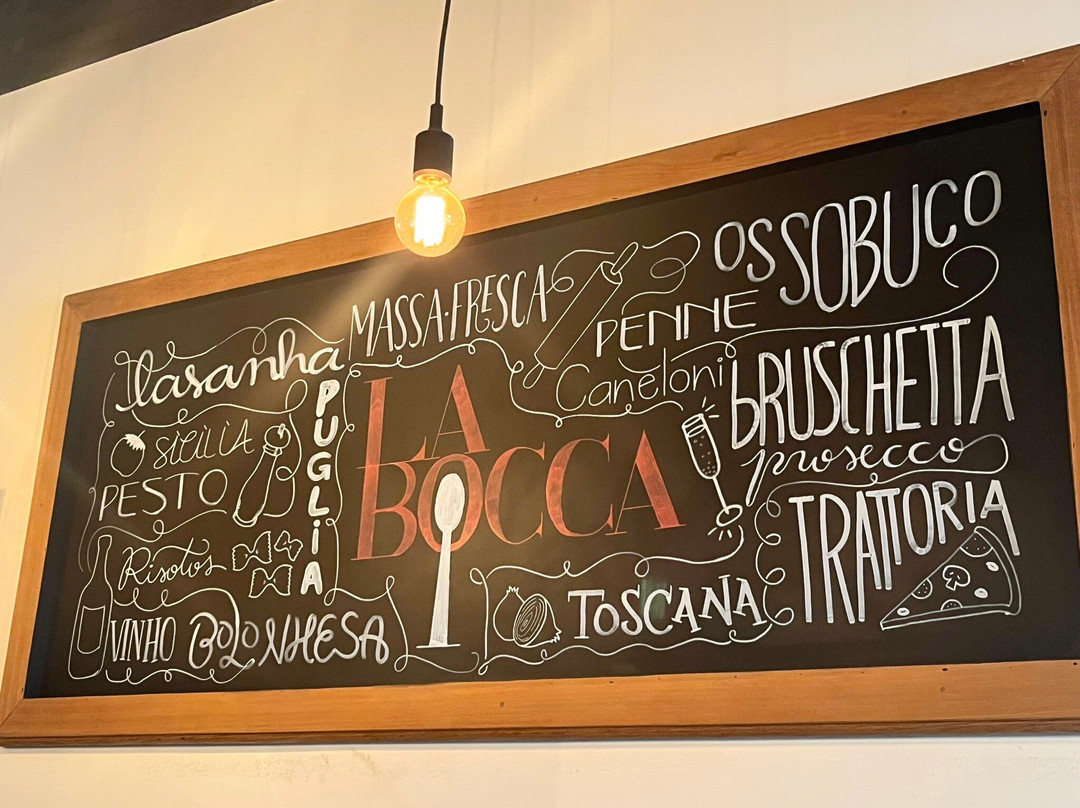 MASSA·FRESCA
OSSOBUCO
PENNE
lasanha
Caneloni
BRUSCHETTA
PUGLIA
SICÍLIA
LA
BOCCA
prosecco
PESTO
TRATTORIA
Risotos
TOSCANA
VINHO BOLONHESA